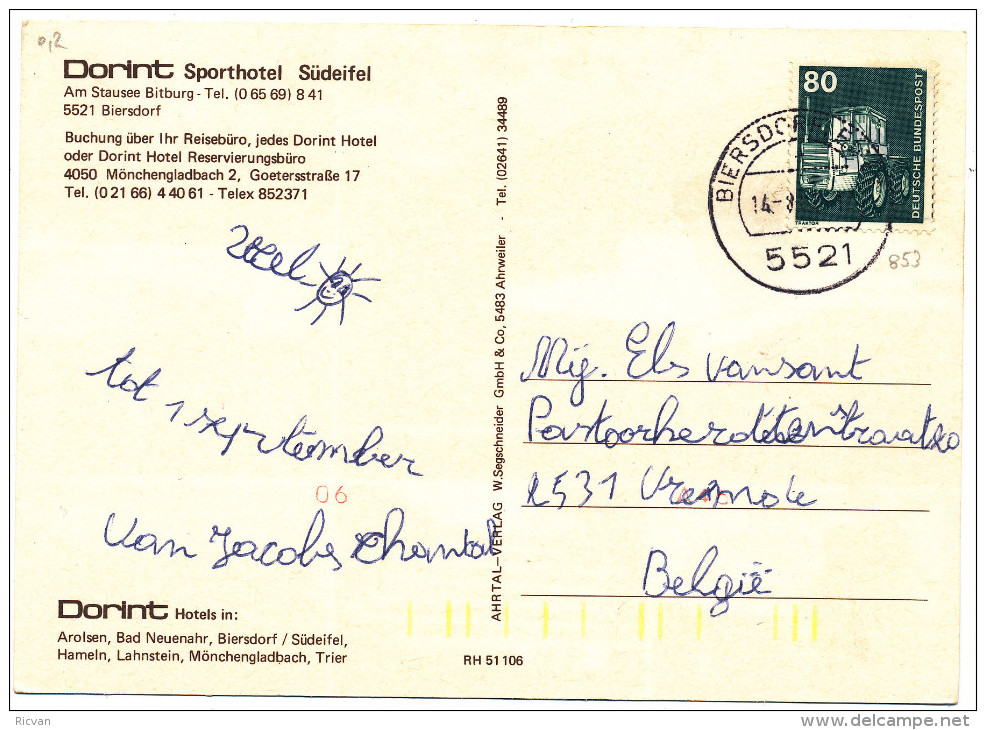 0,2
Dorint Sporthotel Südeifel
Am Stausee Bitburg - Tel. (0 65 69) 8 41
5521 Biersdorf
Buchung über Ihr Reisebüro, jedes Dorint Hotel
oder Dorint Hotel Reservierungsbüro
4050 Mönchengladbach 2, Goetersstraße 17
Tel. (0 21 66) 4 40 61 - Telex 852371
Veel
tot 1 september
06
Van Jacobs Chantal
Dorint Hotels in:
Arolsen, Bad Neuenahr, Biersdorf / Südeifel,
Hameln, Lahnstein, Mönchengladbach, Trier
RH 51 106
AHRTAL-VERLAG W.Segschneider GmbH & Co, 5483 Ahrweiler - Tel. (02641) 34489
80
DEUTSCHE BUNDESPOST
TRAKTOR
BIERSDORF
14.-8
5521
853
Mij. Els Vansant
2531 Vremde
België
Ricvan
www.delcampe.net